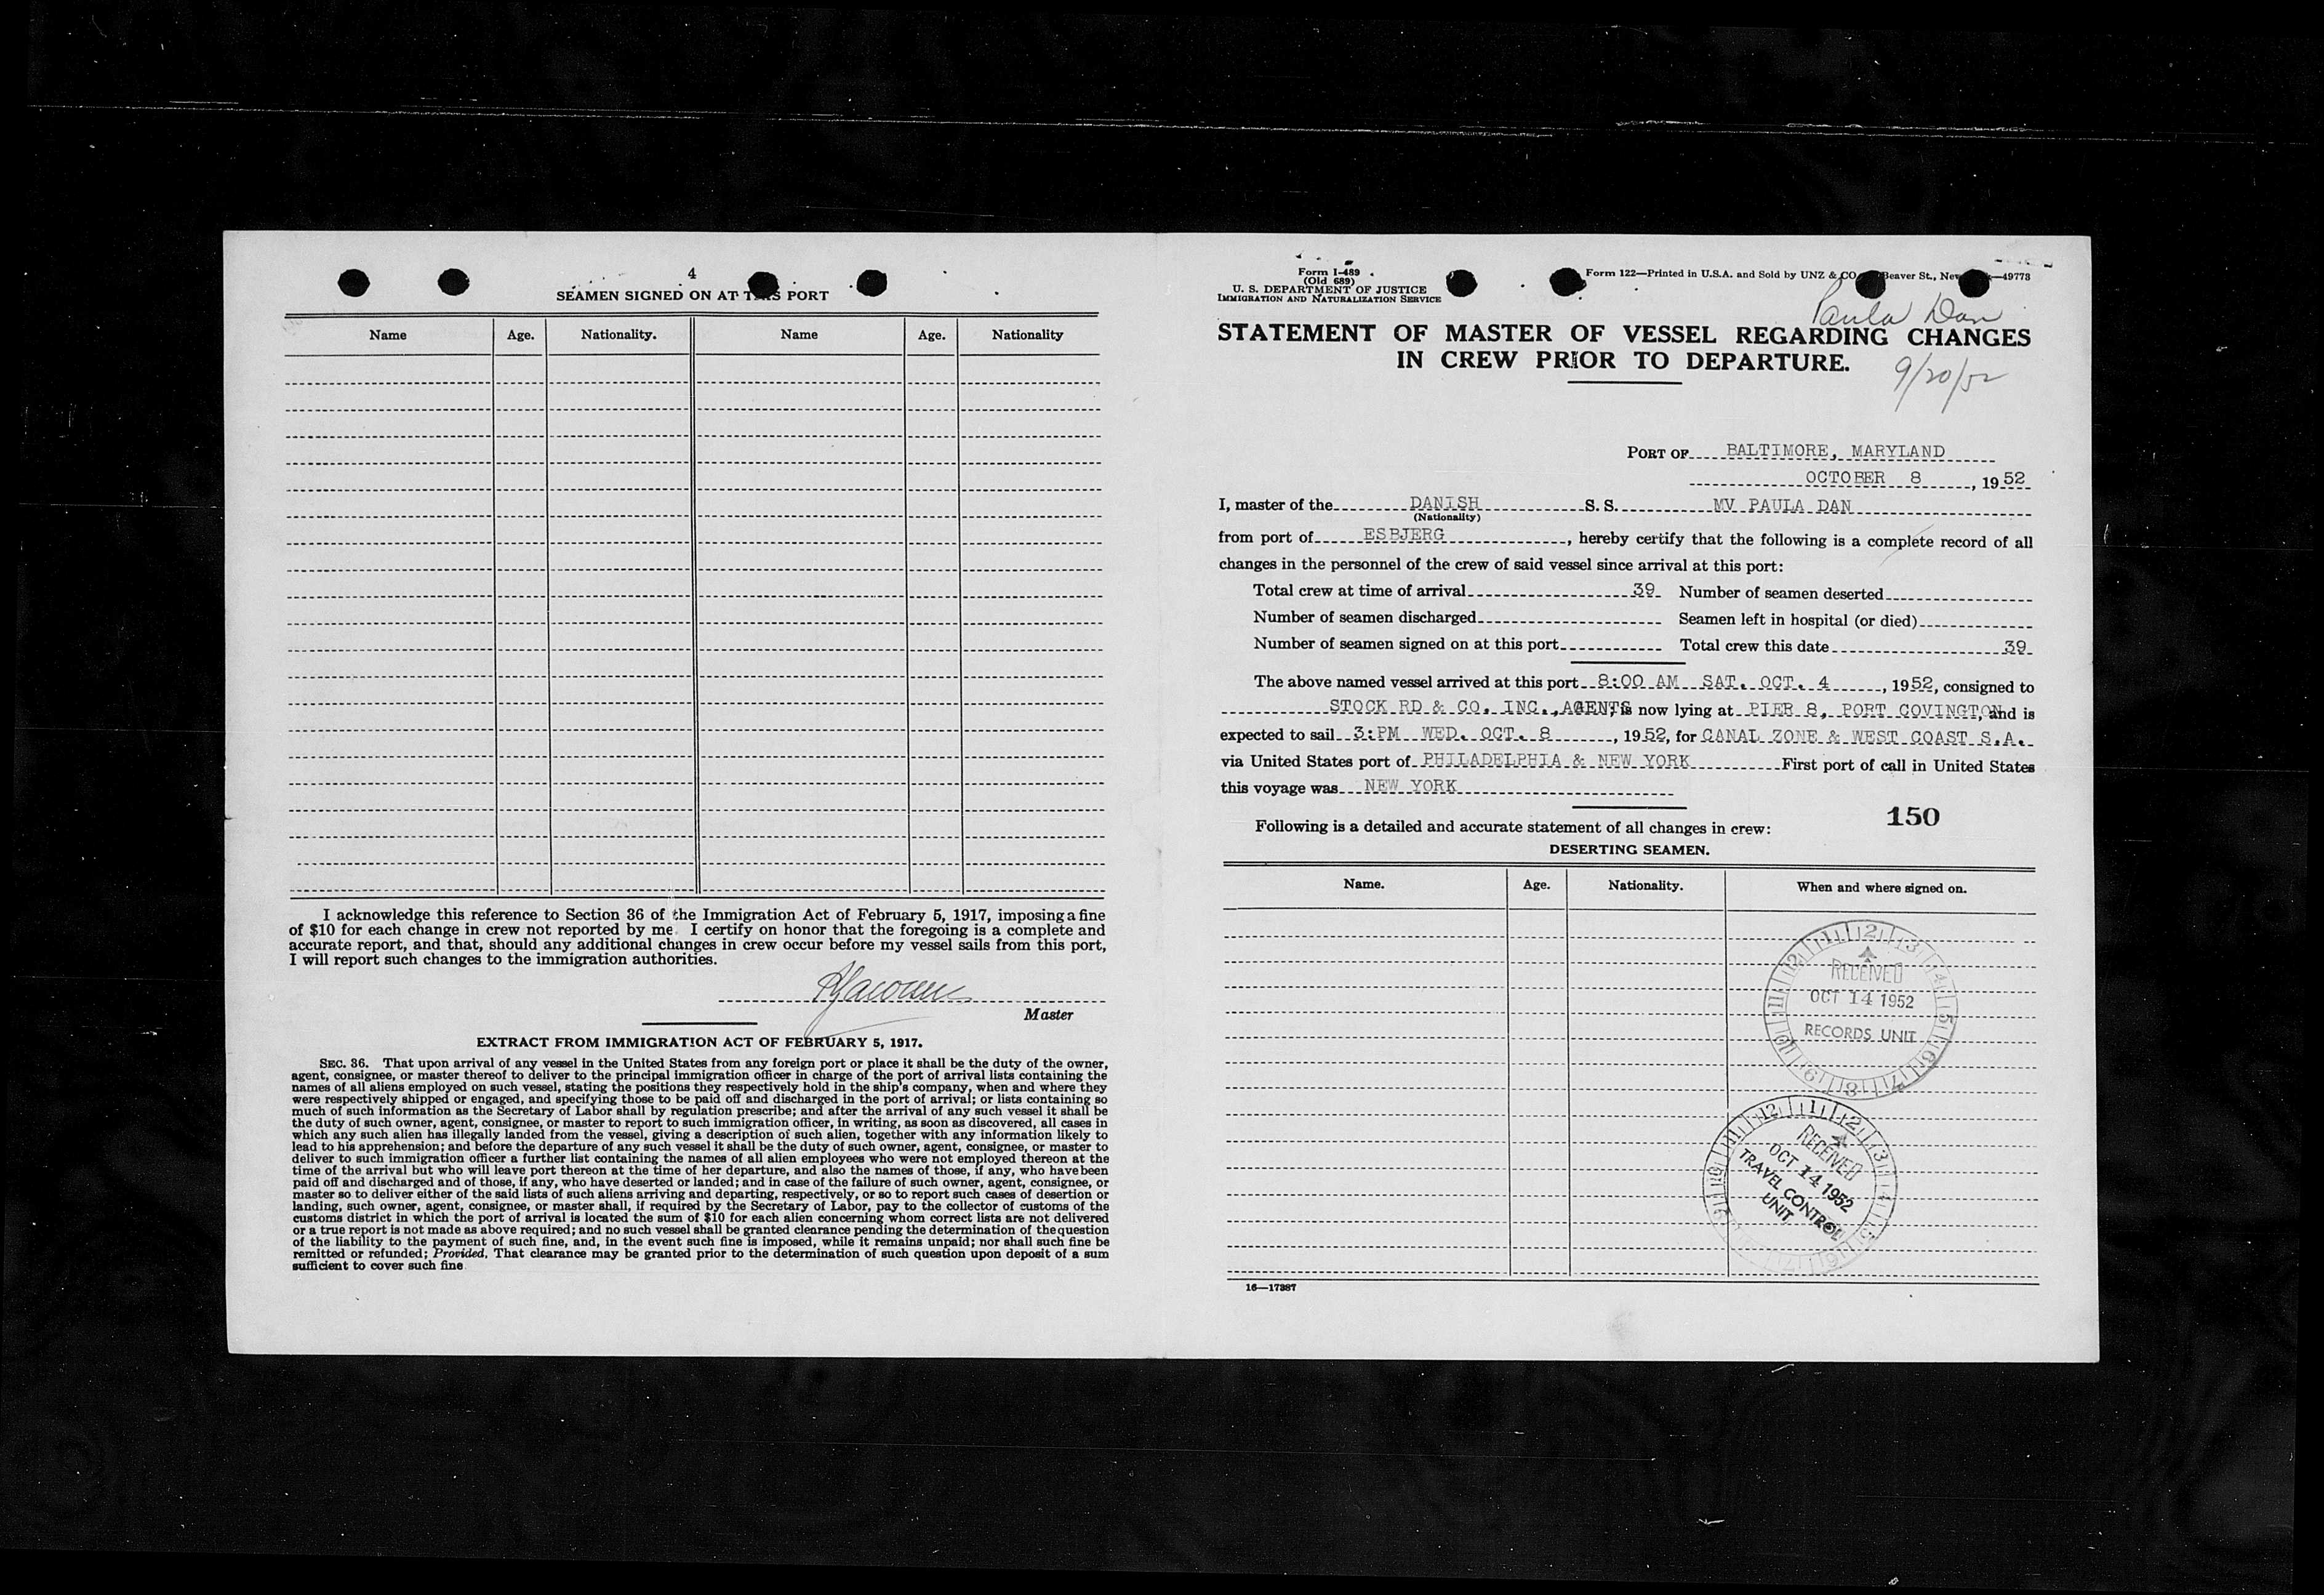 4
SEAMEN SIGNED ON AT THIS PORT
Name Age. Nationality. Name Age. Nationality
I acknowledge this reference to Section 36 of the Immigration Act of February 5, 1917, imposing a fine
of $10 for each change in crew not reported by me. I certify on honor that the foregoing is a complete and
accurate report, and that, should any additional changes in crew occur before my vessel sails from this port,
I will report such changes to the immigration authorities.
Master
EXTRACT FROM IMMIGRATION ACT OF FEBRUARY 5, 1917.
SEC. 36. That upon arrival of any vessel in the United States from any foreign port or place it shall be the duty of the owner,
agent, consignee, or master thereof to deliver to the principal immigration officer in charge of the port of arrival lists containing the
names of all aliens employed on such vessel, stating the positions they respectively hold in the ship's company, when and where they
were respectively shipped or engaged, and specifying those to be paid off and discharged in the port of arrival; or lists containing so
much of such information as the Secretary of Labor shall by regulation prescribe; and after the arrival of any such vessel it shall be
the duty of such owner, agent, consignee, or master to report to such immigration officer, in writing, as soon as discovered, all cases in
which any such alien has illegally landed from the vessel, giving a description of such alien, together with any information likely to
lead to his apprehension; and before the departure of any such vessel it shall be the duty of such owner, agent, consignee, or master to
deliver to such immigration officer a further list containing the names of all alien employees who were not employed thereon at the
time of the arrival but who will leave port thereon at the time of her departure, and also the names of those, if any, who have been
paid off and discharged and of those, if any, who have deserted or landed; and in case of the failure of such owner, agent, consignee, or
master so to deliver either of the said lists of such aliens arriving and departing, respectively, or so to report such cases of desertion or
landing, such owner, agent, consignee, or master shall, if required by the Secretary of Labor, pay to the collector of customs of the
customs district in which the port of arrival is located the sum of $10 for each alien concerning whom correct lists are not delivered
or a true report is not made as above required; and no such vessel shall be granted clearance pending the determination of the question
of the liability to the payment of such fine, and, in the event such fine is imposed, while it remains unpaid; nor shall such fine be
remitted or refunded; Provided, That clearance may be granted prior to the determination of such question upon deposit of a sum
sufficient to cover such fine
Form I-489
(Old 689)
U. S. DEPARTMENT OF JUSTICE
IMMIGRATION AND NATURALIZATION SERVICE
Form 122—Printed in U.S.A. and Sold by UNZ & CO Beaver St., New —49773
Paula Dan
STATEMENT OF MASTER OF VESSEL REGARDING CHANGES
IN CREW PRIOR TO DEPARTURE.
9/20/52
PORT OF BALTIMORE, MARYLAND
OCTOBER 8, 1952
I, master of the DANISH S. S. MV PAULA DAN
(Nationality)
from port of ESBJERG, hereby certify that the following is a complete record of all
changes in the personnel of the crew of said vessel since arrival at this port:
Total crew at time of arrival 39 Number of seamen deserted
Number of seamen discharged Seamen left in hospital (or died)
Number of seamen signed on at this port Total crew this date 39
The above named vessel arrived at this port 8:00 AM SAT. OCT. 4, 1952, consigned to
STOCK RD & CO. INC., AGENTS, is now lying at PIER 8, PORT COVINGTON, and is
expected to sail 3:PM WED. OCT. 8, 1952, for CANAL ZONE & WEST COAST S.A.
via United States port of PHILADELPHIA & NEW YORK First port of call in United States
this voyage was NEW YORK
150
Following is a detailed and accurate statement of all changes in crew:
DESERTING SEAMEN.
Name. Age. Nationality. When and where signed on.
12 1 2 3 4 5 6 7 8 9 10 11
RECEIVED
OCT 14 1952
RECORDS UNIT
12 1 2 3 4 5 6 7 9 10 11
RECEIVED
OCT 14 1952
TRAVEL CONTROL
UNIT
16—17387